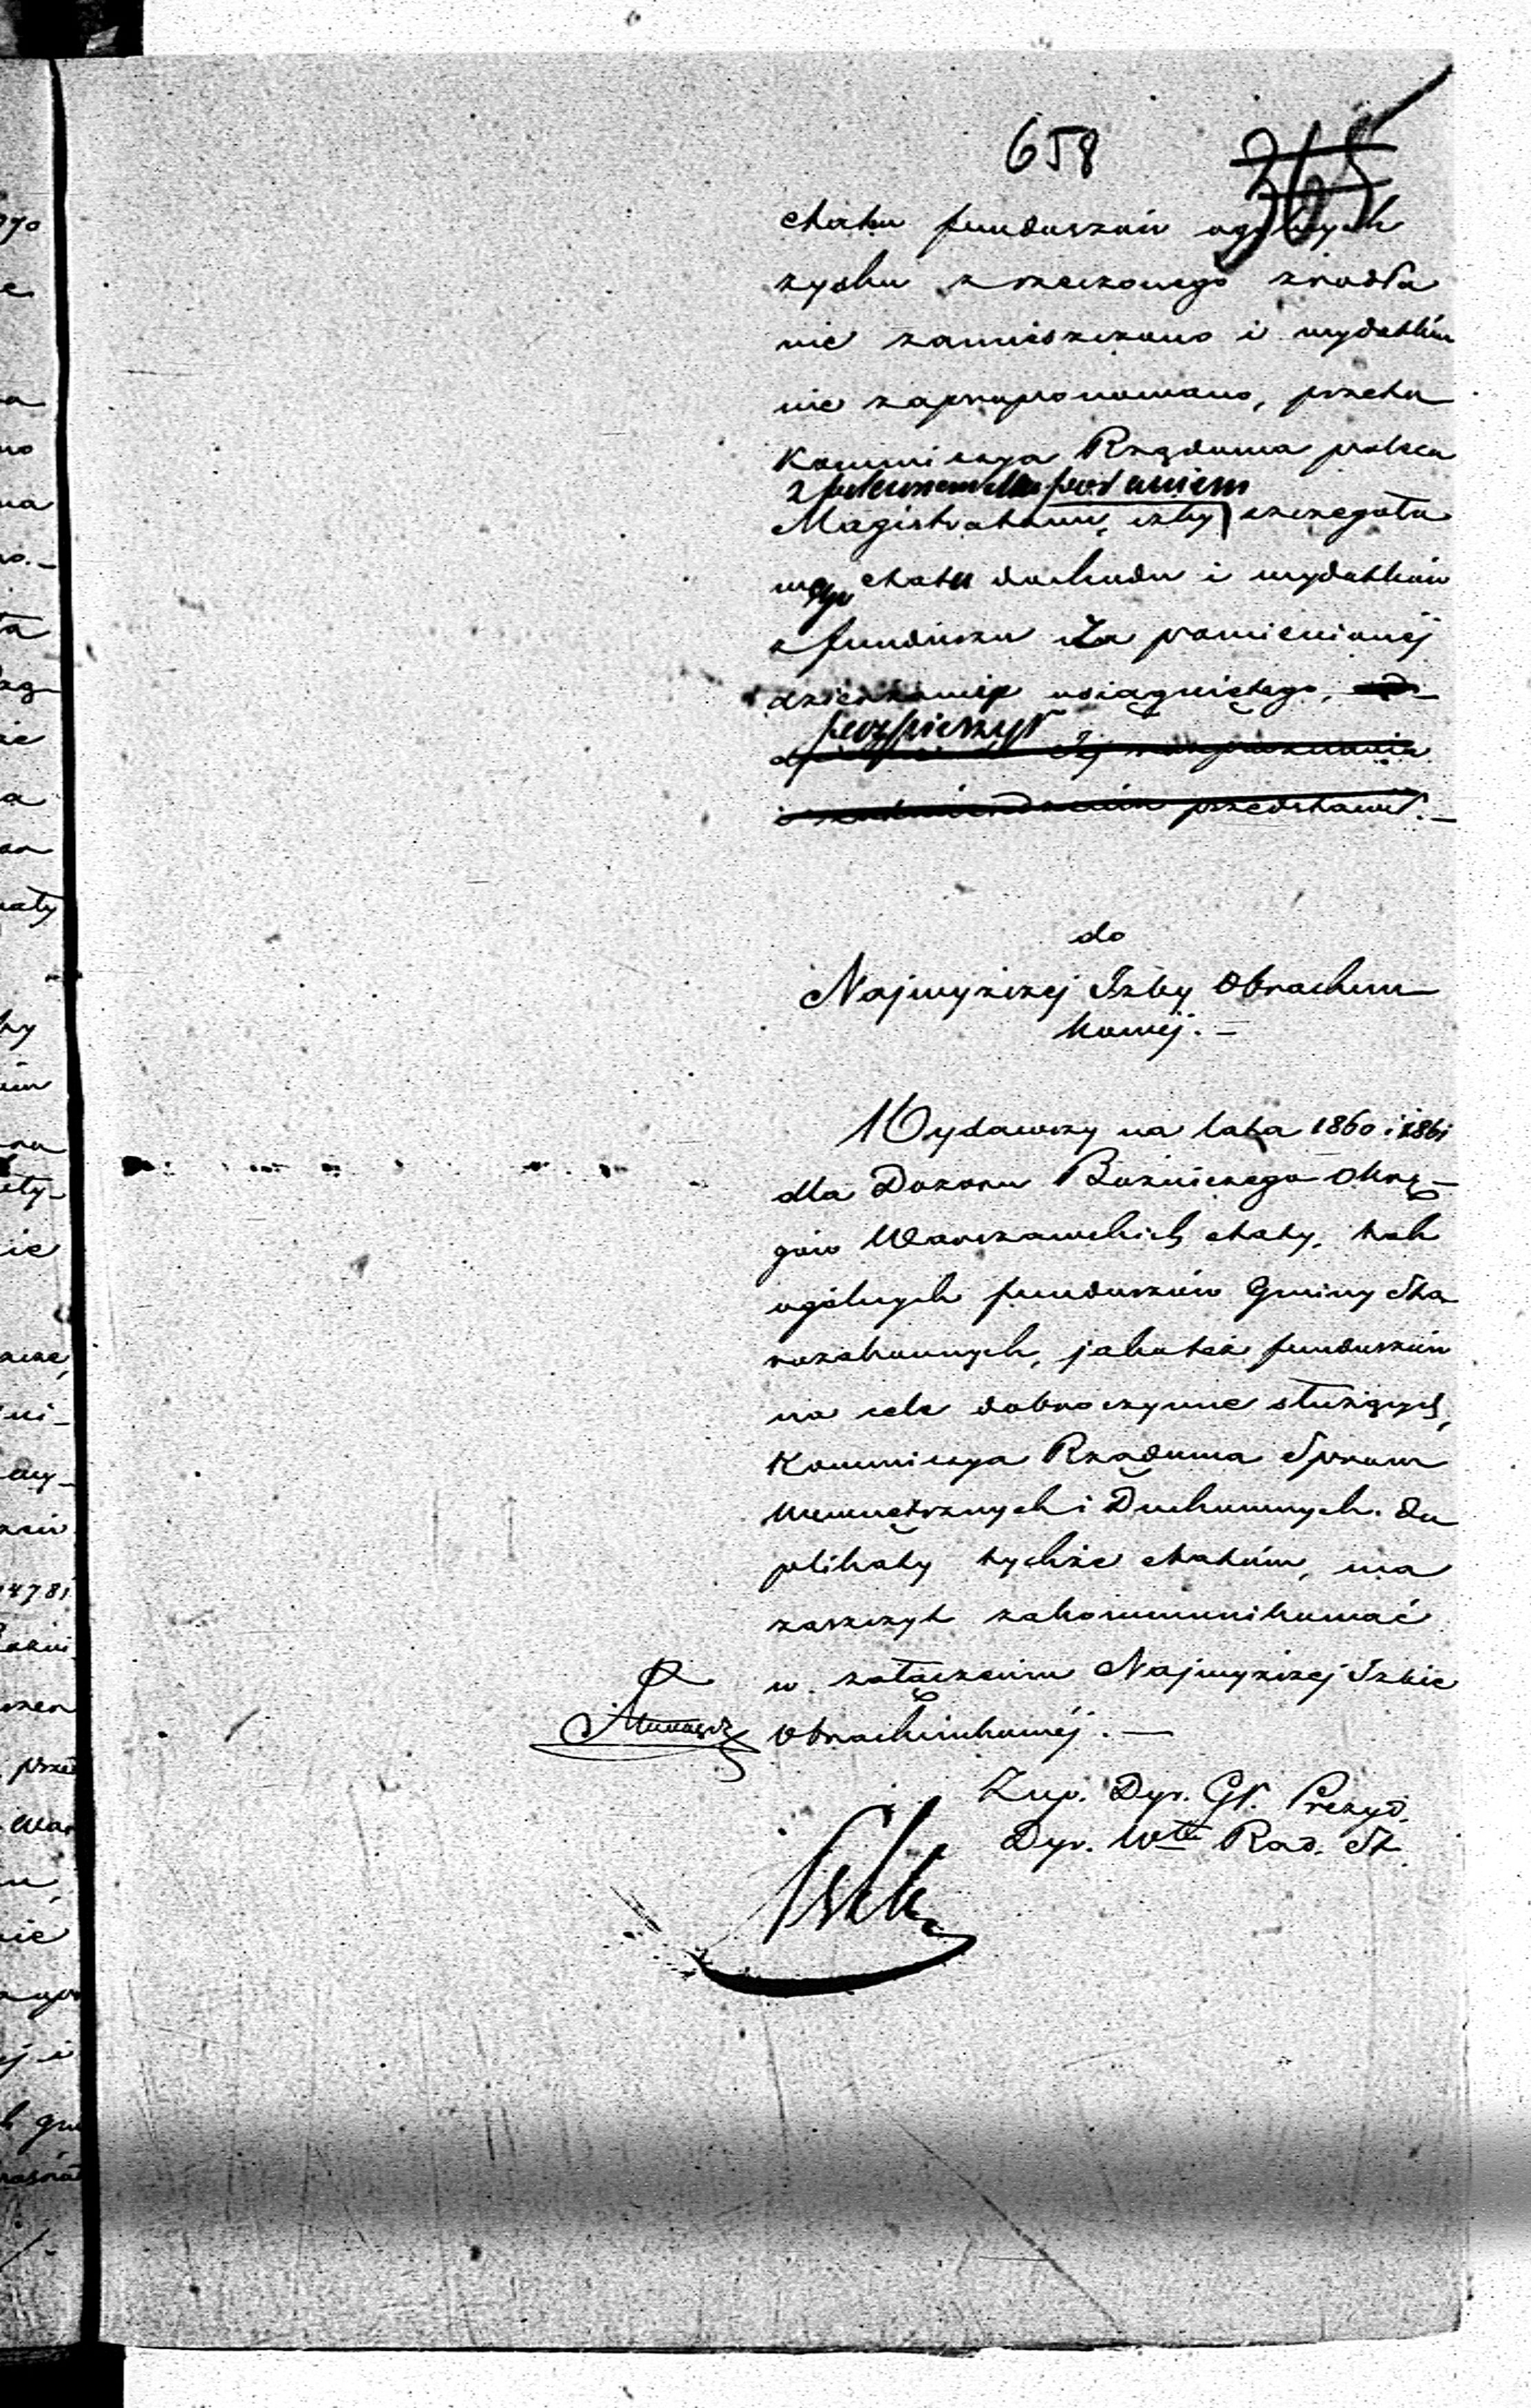 658 365
etatu funduszów ogólnych
zysku z rzeczonego źródła
nie zamieszczono i wydatków
nie zaproponowano, przeto
Kommissya Rządowa poleca
Magistratowi, iżby szczegóło
wego etatu dochodu i wydatków
z funduszu za pomienioną
dzierżawę osiągniętego,
przedstawił.
do
Najwyższej Izby Obrachun
kowej.
Wydawszy na lata 1860 i 1861
dla Dozoru Bóżniczego Okrę-
gów Warszawskich etaty, tak
ogólnych funduszów Gminy Sta
rozakonnych, jakoteż funduszów
na cele dobroczynne służących,
Kommissya Rządowa Spraw
Wewnętrznych i Duchownych. du
plikaty tychże etatów, ma
zaszczyt zakommunikować
w załączeniu Najwyższej Izbie
Obrachunkowej.
Zup. Dyr. Gł. Prezyd.
Dyr. Włł Rad. St.